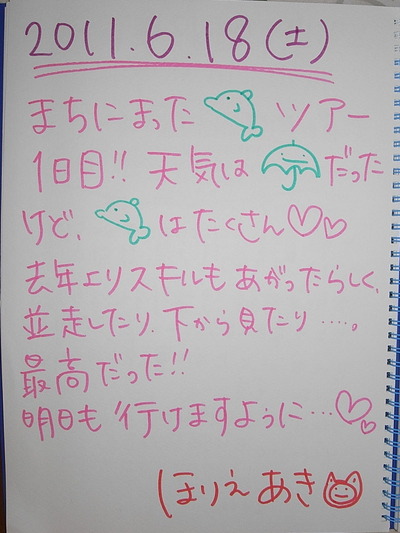 2011.6.18(土)
まちにまった ツアー
1日目!! 天気は だった
けど、 はたくさん♡♡
去年よりスキルもあがったらしく、
並走したり、下から見たり……。
最高だった!!
明日も行けますように…♡♡
ほりえ あき